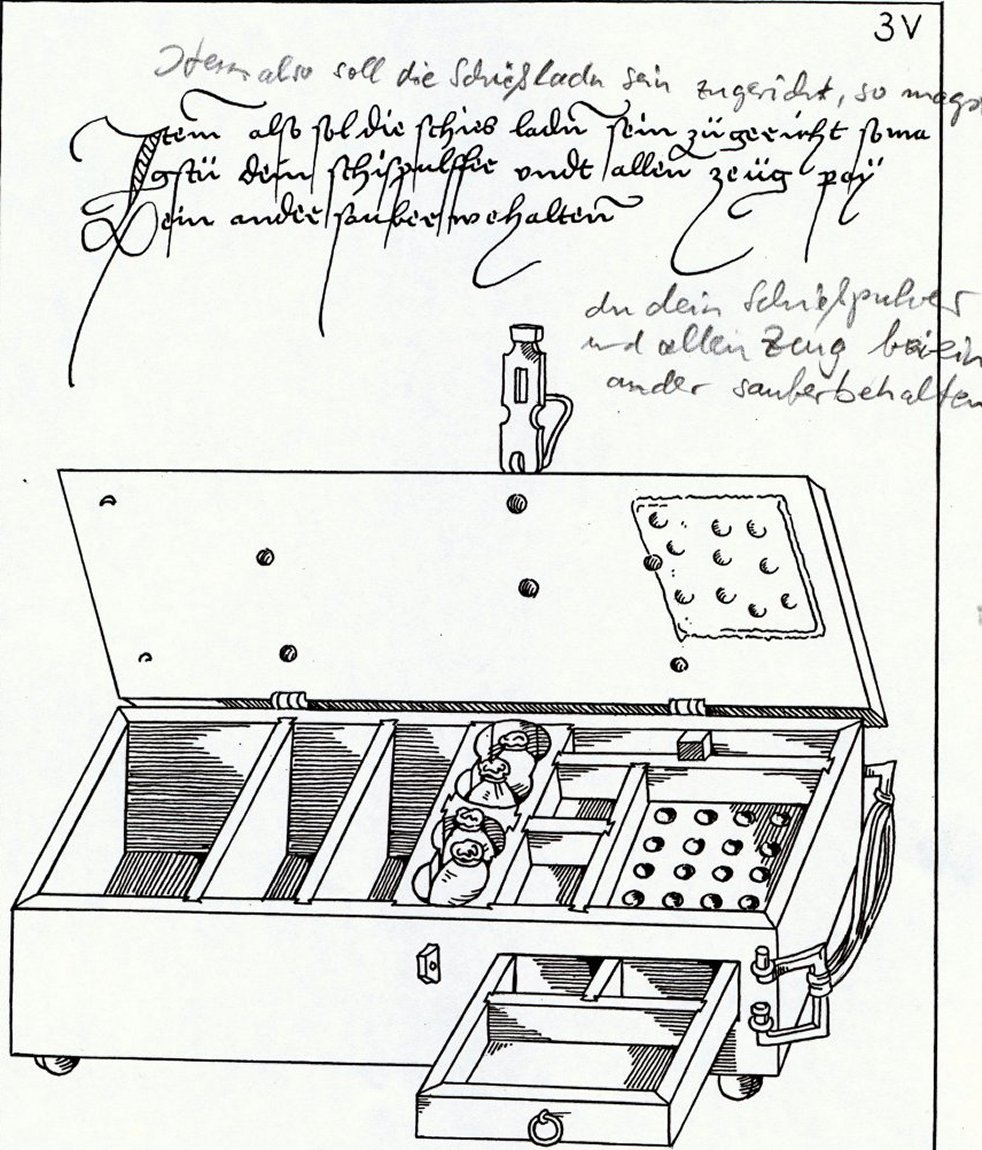 3V
Item also soll die Schießladn sein zugericht, so magst
Item also sol die schies ladn sein zůgericht so ma
gstü dein schispulffer vndt allen zeüg pay
Dein ander sauber wehalten
du dein Schießpulver
und allen Zeug beiein
ander sauber behalten